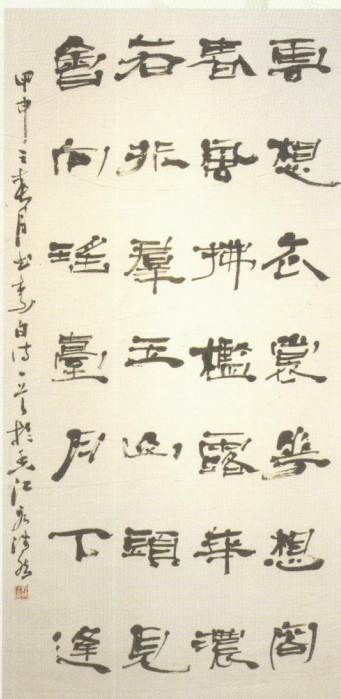 雲想衣裳華想容
春風拂檻露華濃
若非羣玉山頭見
會向瑤臺月下逢
甲申之春月書李白詩一首於香江